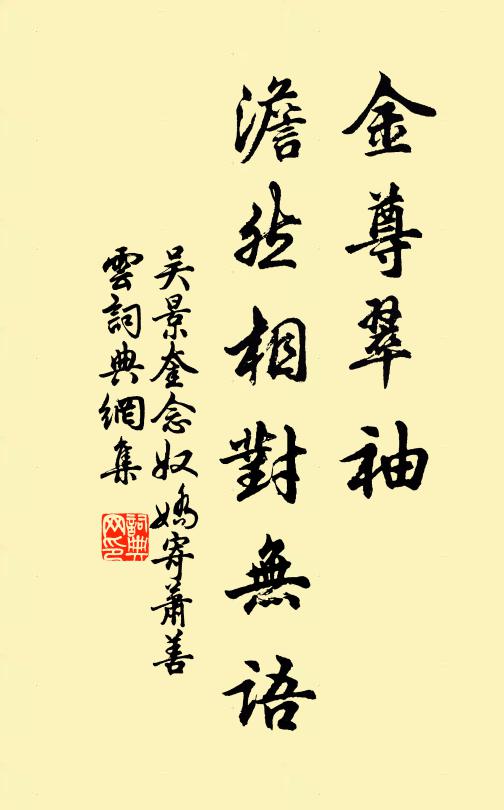 金尊翠袖
澹然相對無語
吴景奎念奴嬌寄蕭善
雲詞典網集
詞典
网印